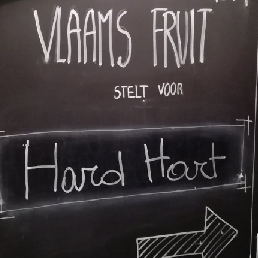 VLAAMS FRUIT
STELT VOOR
Hard Hart